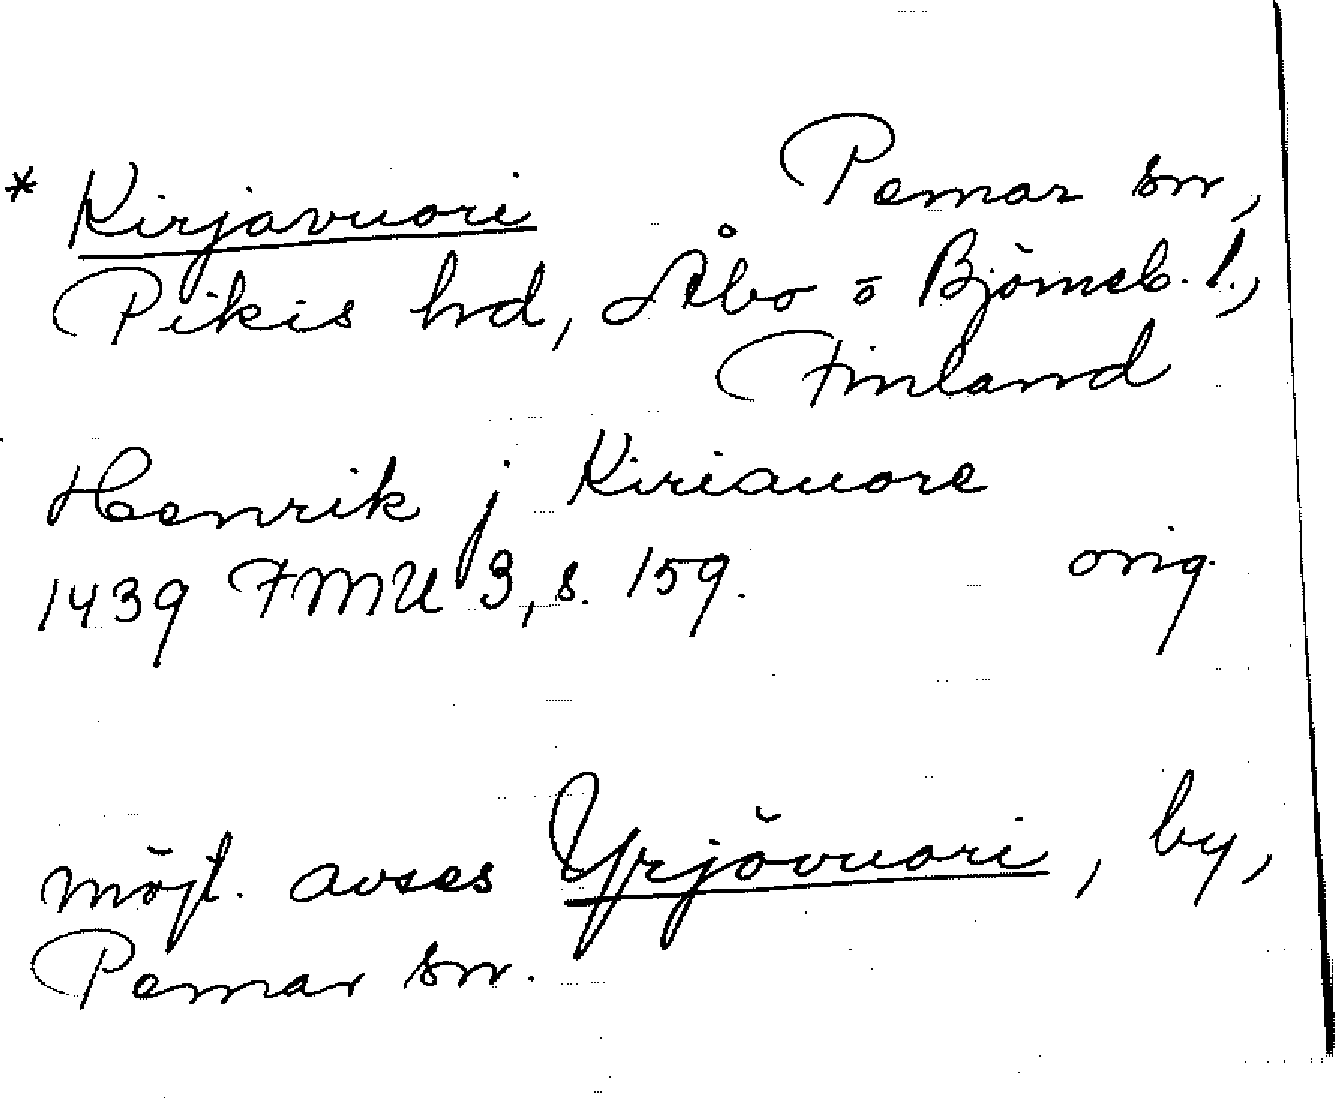 * Kirjavuori Pemar sn,
Pikis hd, Åbo o Björneb. l.,
Finland
Henrik j Kirianore
1439 FMU 3, s. 159. orig
möjl. avses Yrjövuori, by,
Pemar sn.